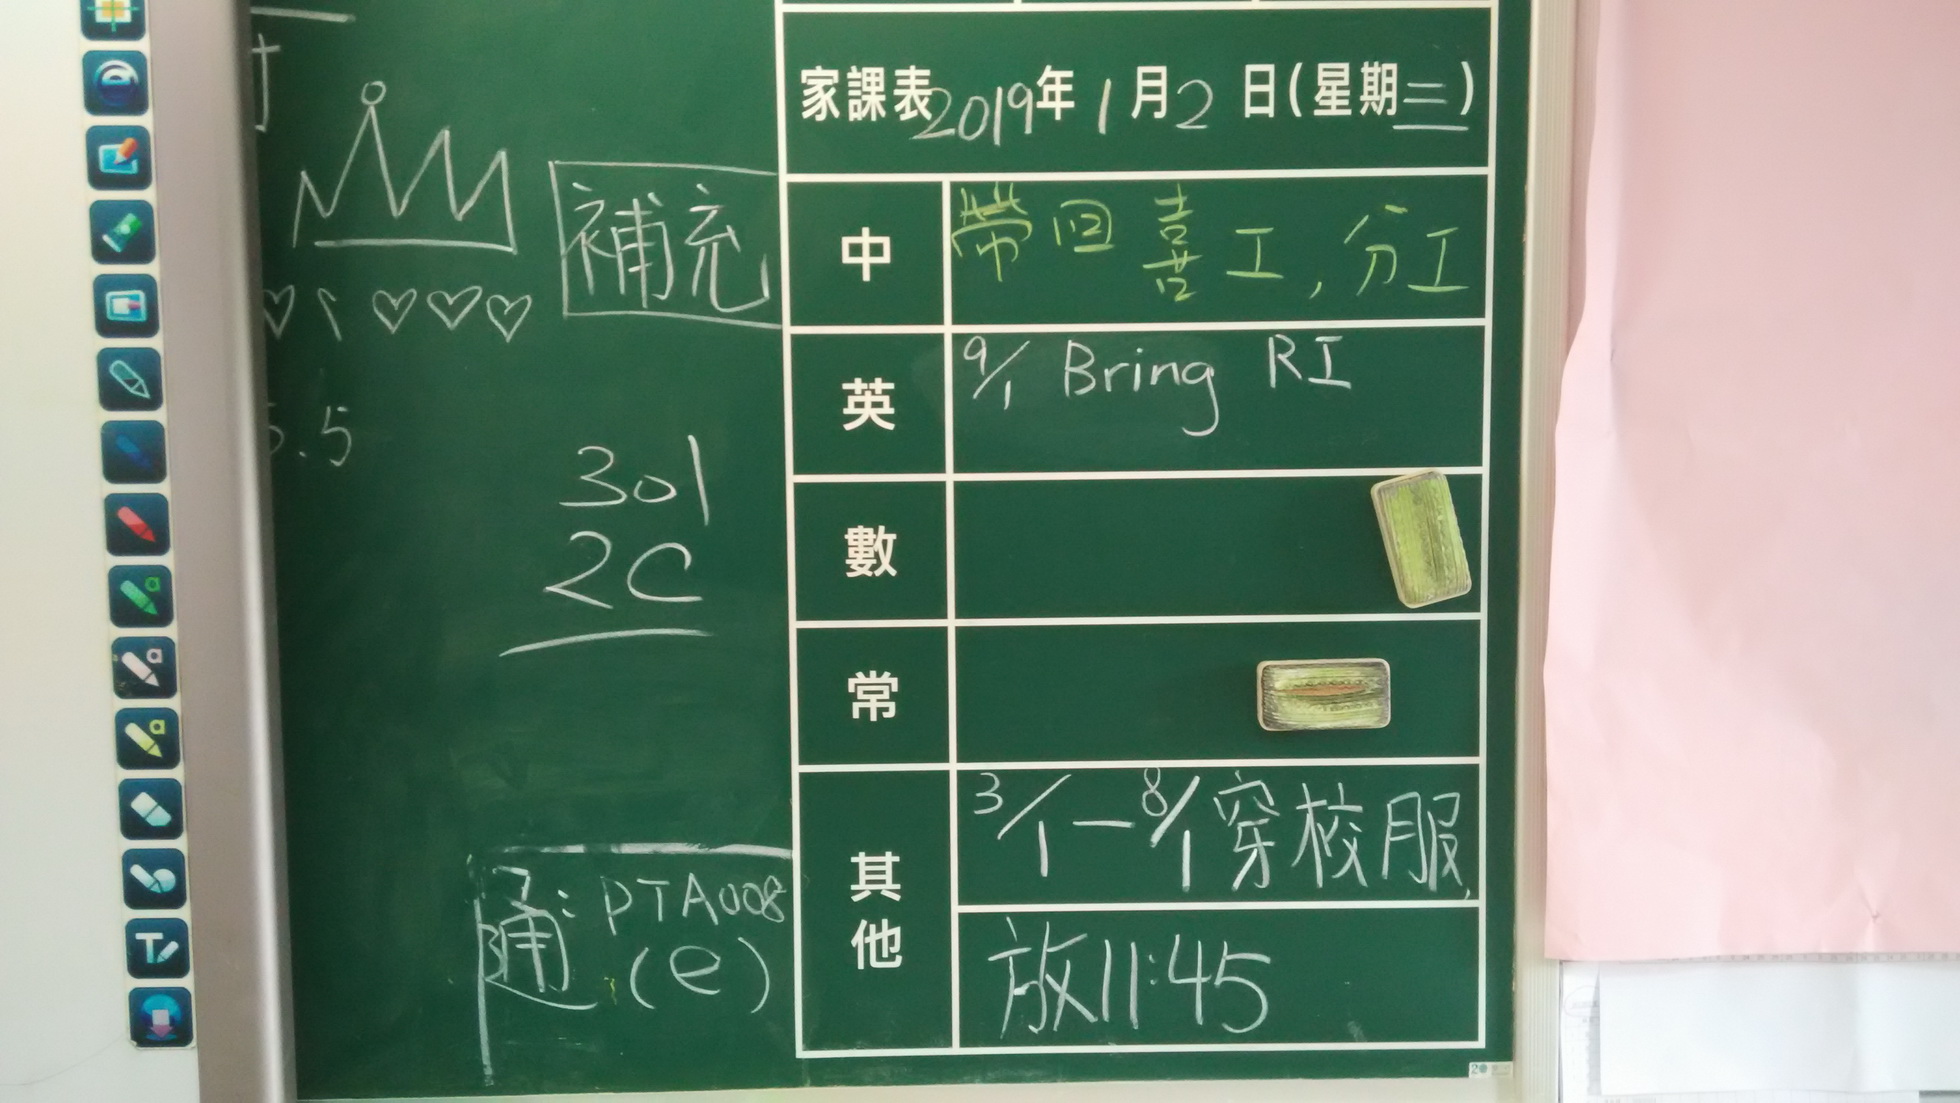 家課表2019年1月2日(星期三)
補充
中 帶回喜工,分工
英 9/1 Bring RI
數
常
其他 3/1—8/1穿校服,
放11:45
5.5
301
2C
通: PTA008
(e)